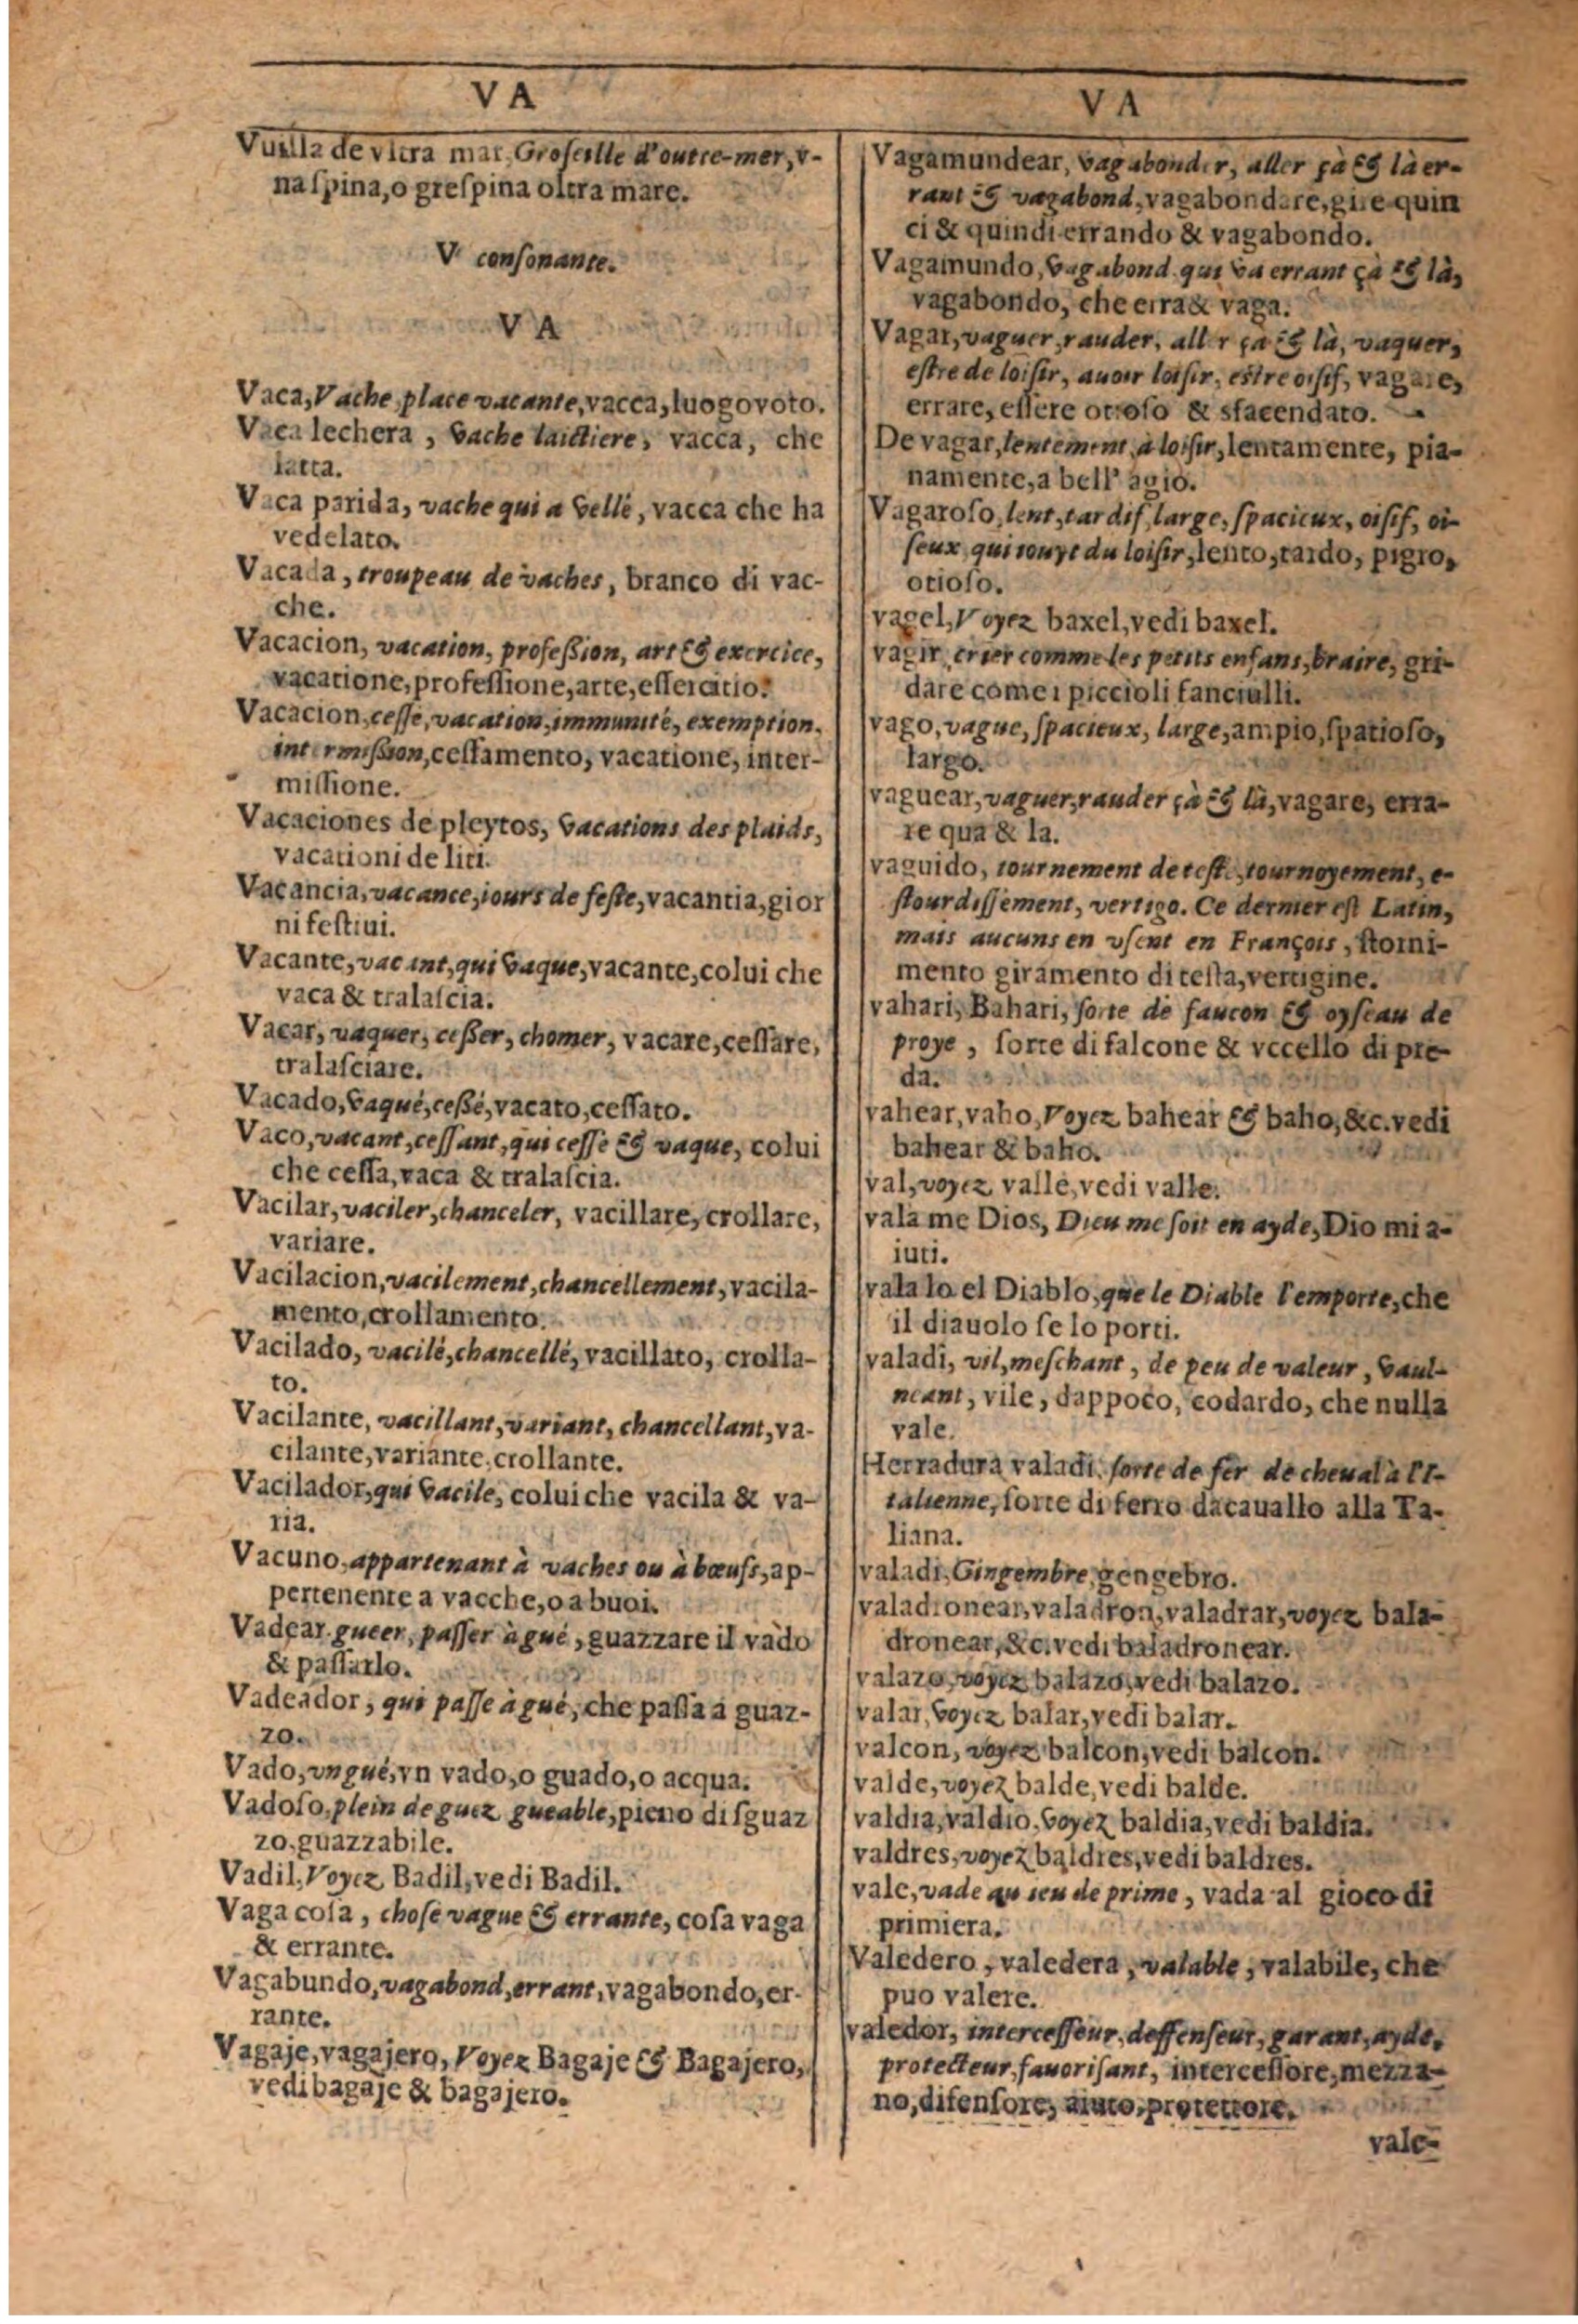 VA
Vuilla de vltra mar, Groseille d'outre-mer, v-
na ſpina, o greſpina oltra mare.
V conſonante.
VA
Vaca, Vache place vacante, vacca, luogo voto.
Vaca lechera, vache laictiere, vacca, che
latta.
Vaca parida, vache qui a vellé, vacca che ha
vedelato.
Vacada, troupeau de vaches, branco di vac-
che.
Vacacion, vacation, profeſſion, art & exercice,
vacatione, profeſſione, arte, eſſercitio.
Vacacion, ceſſe, vacation, immunité, exemption,
intermiſſion, ceſſamento, vacatione, inter-
miſſione.
Vacaciones de pleytos, vacations des plaids,
vacationi de liti.
Vacancia, vacance, iours de feſte, vacantia, gior
ni feſtiui.
Vacante, vacant, qui vaque, vacante, colui che
vaca & tralaſcia.
Vacar, vaquer, ceſſer, chomer, vacare, ceſſare,
tralaſciare.
Vacado, vaqué, ceſſé, vacato, ceſſato.
Vaco, vacant, ceſſant, qui ceſſe & vaque, colui
che ceſſa, vaca & tralaſcia.
Vacilar, vaciler, chanceler, vacillare, crollare,
variare.
Vacilacion, vacilement, chancellement, vacila-
mento, crollamento.
Vacilado, vacilé, chancellé, vacillato, crolla-
to.
Vacilante, vacillant, variant, chancellant, va-
cilante, variante, crollante.
Vacilador, qui vacile, colui che vacila & va-
ria.
Vacuno, appartenant à vaches ou à bœufs, ap-
pertenente a vacche, o a buoi.
Vadear gueer, paſſer à gué, guazzare il vado
& paſſarlo.
Vadeador, qui paſſe à gué, che paſſa a guaz-
zo.
Vado, vn gué, vn vado, o guado, o acqua.
Vadoſo, plein de guez gueable, pieno di ſguaz
zo, guazzabile.
Vadil, Voyez Badil, vedi Badil.
Vaga coſa, choſe vague & errante, coſa vaga
& errante.
Vagabundo, vagabond, errant, vagabondo, er-
rante.
Vagaje, vagajero, Voyez Bagaje & Bagajero,
vedi bagaje & bagajero.
VA
Vagamundear, vagabonder, aller çà & là er-
rant & vagabond, vagabondare, gire quin
ci & quindi errando & vagabondo.
Vagamundo, vagabond qui va errant çà & là,
vagabondo, che erra & vaga.
Vagar, vaguer, rauder, aller çà & là, vaquer,
eſtre de loiſir, auoir loiſir, eſtre oiſif, vagare,
errare, eſſere otioſo & sfacendato.
De vagar, lentement, à loiſir, lentamente, pia-
namente, a bell' agio.
Vagaroſo, lent, tardif, large, ſpacieux, oiſif, oi-
ſeux, qui iouyt du loiſir, lento, tardo, pigro,
otioſo.
vagel, Voyez baxel, vedi baxel.
vagir, crier comme les petits enfans, braire, gri-
dare come i piccioli fanciulli.
vago, vague, ſpacieux, large, ampio, ſpatioſo,
largo.
vaguear, vaguer, rauder çà & là, vagare, erra-
re qua & la.
vaguido, tournement de teſte, tournoyement, e-
ſtourdiſſement, vertigo. Ce dernier eſt Latin,
mais aucuns en vſent en François, ſtorni-
mento giramento di teſta, vertigine.
vahari, Bahari, ſorte de faucon & oyſeau de
proye, ſorte di falcone & vccello di pre-
da.
vahear, vaho, Voyez bahear & baho, &c. vedi
bahear & baho.
val, voyez valle, vedi valle.
vala me Dios, Dieu me ſoit en ayde, Dio mi a-
iuti.
vala lo el Diablo, que le Diable l'emporte, che
il diauolo ſe lo porti.
valadi, vil, meſchant, de peu de valeur, vaul-
neant, vile, dappoco, codardo, che nulla
vale.
Herradura valadi, ſorte de fer de cheual à l'I-
talienne, ſorte di ferro da cauallo alla Ta-
liana.
valadi, Gingembre, gengebro.
valadronear, valadron, valadrar, voyez bala-
dronear, &c. vedi baladronear.
valazo, voyez balazo, vedi balazo.
valar, voyez balar, vedi balar.
valcon, voyez balcon, vedi balcon.
valde, voyez balde, vedi balde.
valdia, valdio, voyez baldia, vedi baldia.
valdres, voyez baldres, vedi baldres.
vale, vade au ieu de prime, vada al gioco di
primiera.
Valedero, valedera, valable, valabile, che
puo valere.
valedor, interceſſeur, deffenſeur, garant, ayde,
protecteur, fauoriſant, interceſſore, mezza-
no, difenſore, aiuto, protettore.
vale-